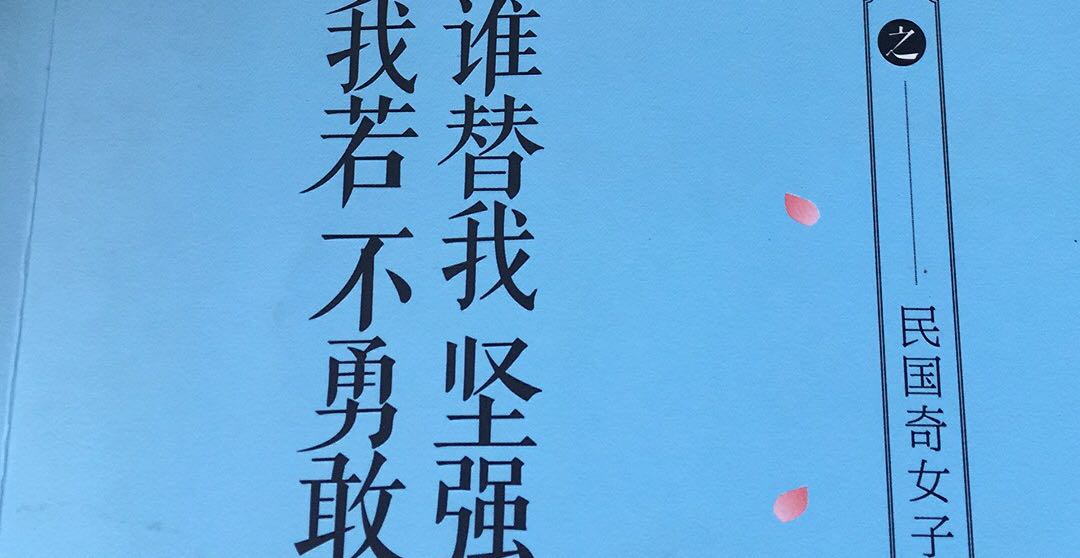 我若不勇敢
谁替我坚强
之
民国奇女子